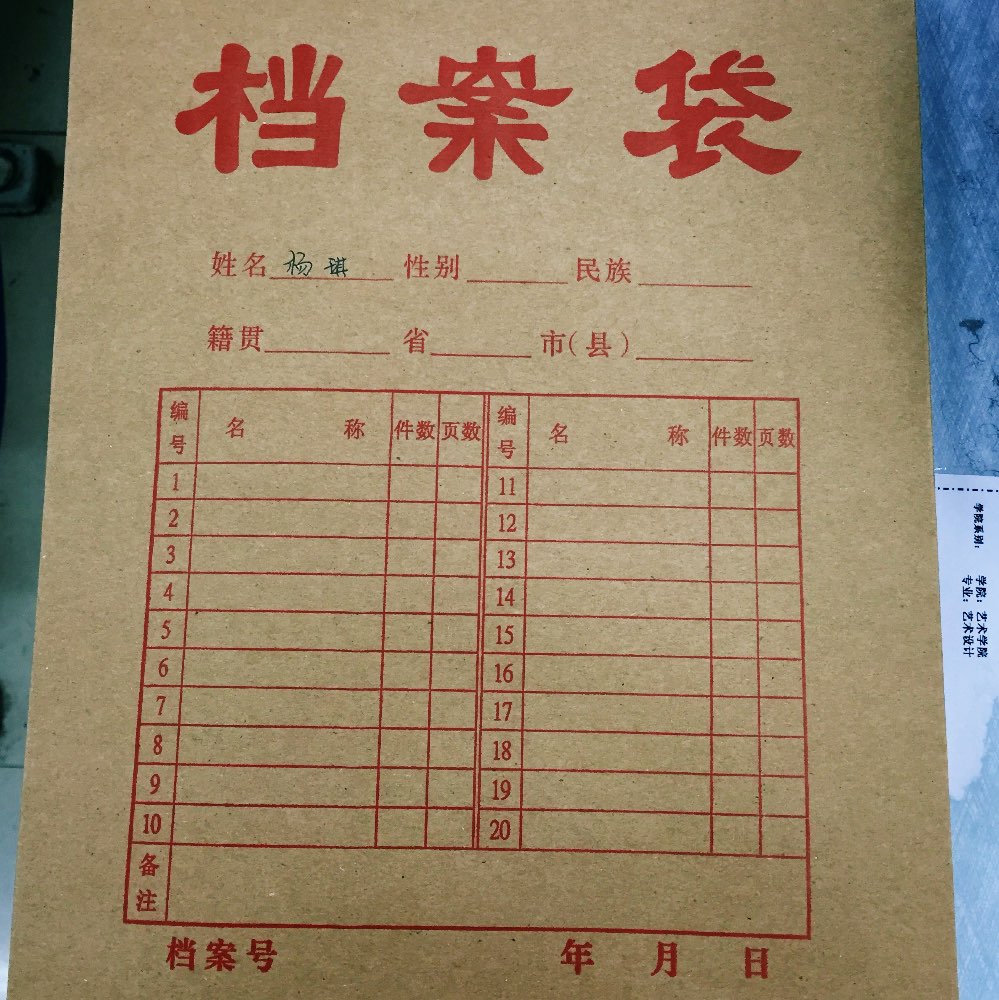 档案袋
姓名 杨琪 性别 民族
籍贯 省 市(县)
编号 名称 件数 页数 编号 名称 件数 页数
1 11
2 12
3 13
4 14
5 15
6 16
7 17
8 18
9 19
10 20
备注
档案号 年 月 日
学院系别:
学院:艺术学院
专业:艺术设计